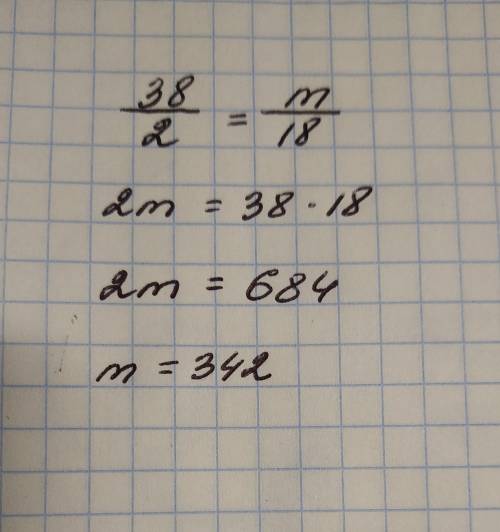 38/2 = m/18
2m = 38 · 18
2m = 684
m = 342